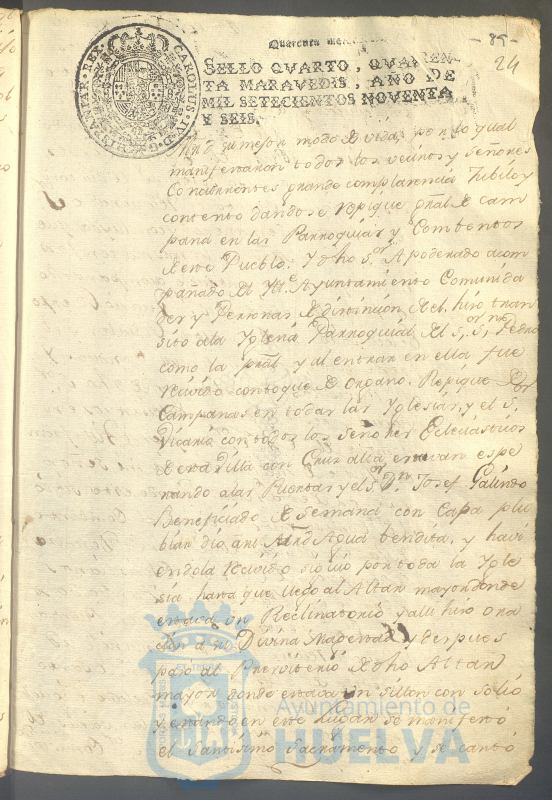 Quarenta
- 85 -
24
CAROLUS·IV·D·G·HISPANIAR·REX
SELLO QVARTO, QVAREN-
TA MARAVEDIS, AÑO DE
MIL SETECIENTOS NOVENTA
Y SEIS.
su mejor modo de vida, por lo qual
manifestaron todos los vecinos y señores
Concurrentes grande complacencia Jubilo y
contento dandose repique gral. de cam
pana en las Parroquias y Combentos
de este Pueblo: Y dho Sor. Apoderado acom
pañado del Ylle. Ayuntamiento Comunida
des y Personas de distincion de el, hizo tran
sito a la Yglesia Parroquial del Sor. Sn. Pedro
como la pral. y al entrar en ella fue
recivido con toque de organo, Repique de
Campanas en todas las Yglesias, y el Sor.
Vicario con todos los señores Ecleciasticos
de esta Villa con Cruz alta estavan espe
rando a las Puertas y el Sor. Dn. Josef Galindo
Beneficiado de Semana con Capa plu
bial dio a mi Agua bendita, y havi
endola recivido siguio por toda la Ygle
sia hasta que llego al Altar mayor donde
estava un Reclinatorio, y alli hizo ora
cion a su Divina Magestad y despues
paso al Presviterio de dho Altar
mayor donde estava un sillon con solio
y estando en este lugar se manifestó
el Santisimo Sacramento y se cantó
Ayuntamiento de
HUELVA